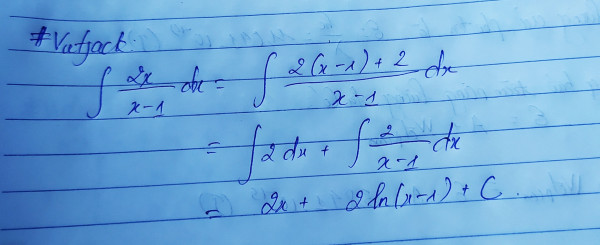 #Vafjack
∫ 2x/(x-1) dx = ∫ (2(x-1)+2)/(x-1) dx
= ∫ 2 dx + ∫ 2/(x-1) dx
= 2x + 2 ln(x-1) + C.